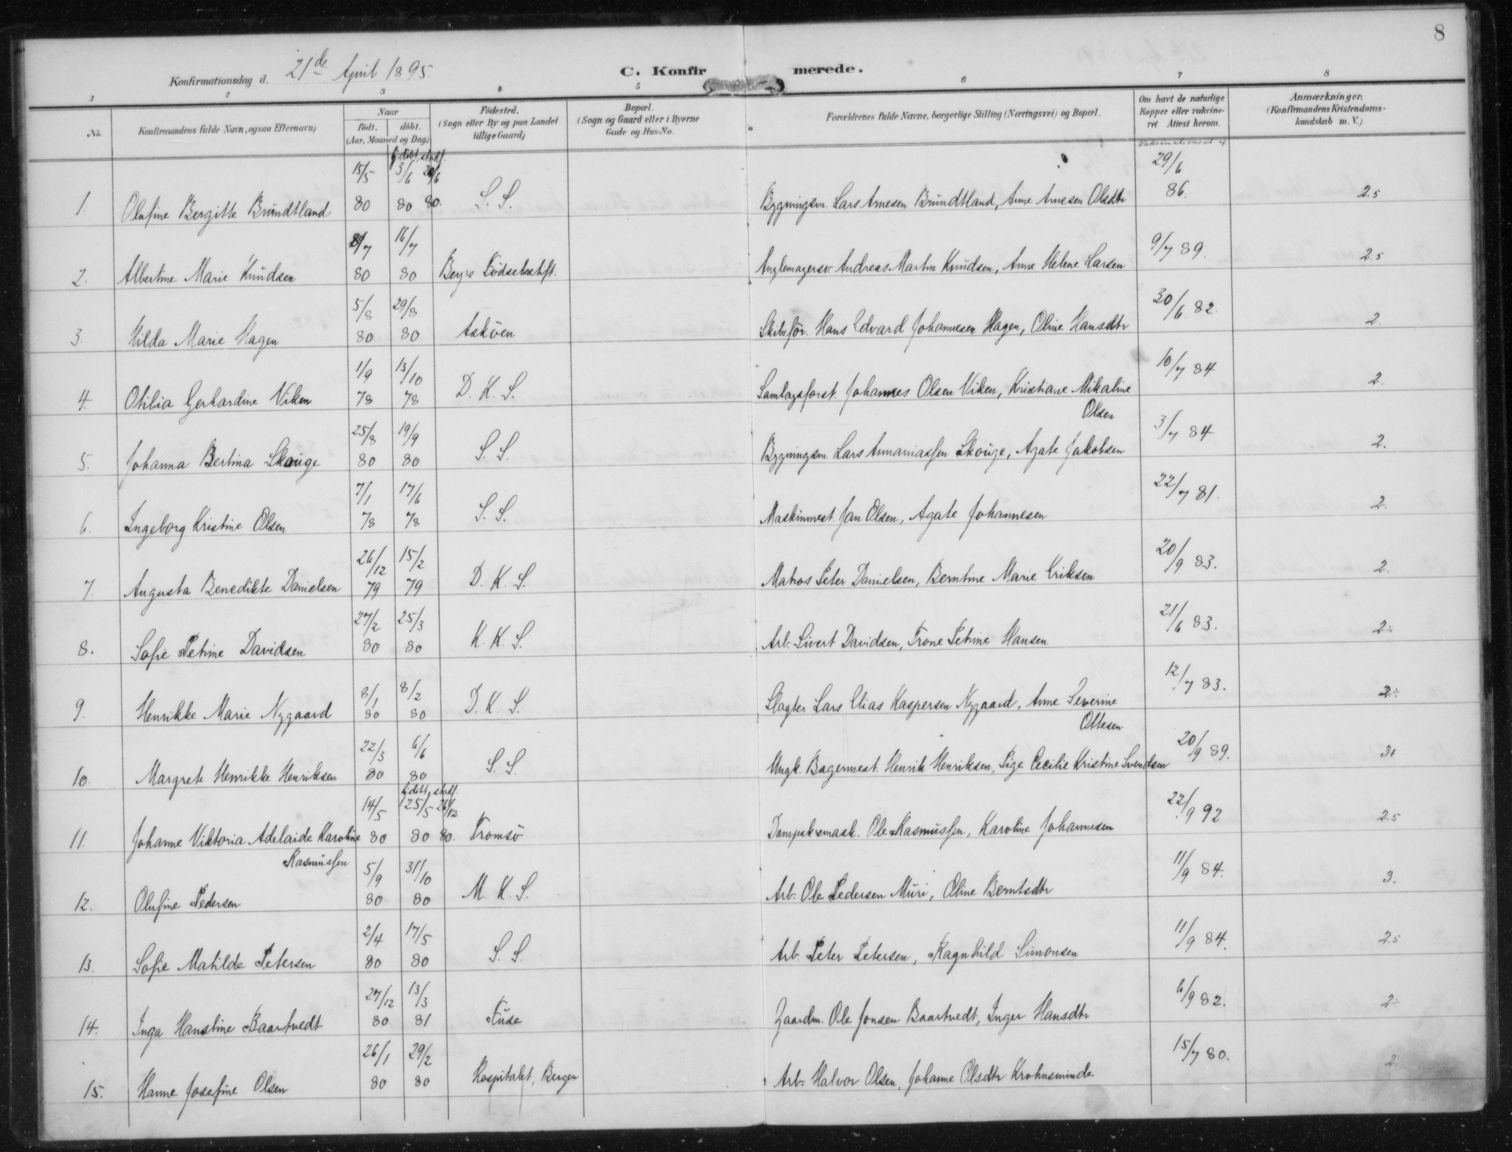 8
Konfirmationsdag d. 21de April 1895. C. Konfirmerede.
1 2 3 4 5 6 7 8
No. Konfirmandens fulde Navn, ogsaa Efternavn) Naar født. døbt. (Aar, Maaned og Dag) Fødested. (Sogn eller By og paa Landet tillige Gaard) Bopæl. (Sogn og Gaard eller i Byerne Gade og Hus-No. Forældrenes fulde Navne, borgerlige Stilling (Næringsvei) og Bopæl. Om havt de naturlige Kopper eller vaksineret Attest herom. Anmærkninger. (Konfirmandens Kristendomskundskab m. V.)
1. Olufine Bergitte Brundtland 15/5 80 hdbt. 3/6 80 stadf. 20/6 80. S. S. Bygningsm. Lars Arnesen Brundtland, Anne Arnesen Olsdtr 29/6 86. 2.5
2. Albertine Marie Knudsen /7 80 16/7 80 Bergs Fødselsstift. Andreas Martin Knudsen, Anne Helene Larsen 9/7 89. 2.5
3. Hilda Marie Hagen 5/8 80 29/8 80 Askøen Skibsför. Hans Edvard Johannesen Hagen, Oline Hansdtr 30/6 82. 2.
4. Otilia Gerhardine Viken 1/9 78 13/10 78 D. K. S. Samlagsforst. Johannes Olsen Viken, Kristiane Mikaline Olsen 10/7 84 2.
5. Johanna Bertina Skouge 25/8 80 19/9 80 S. S. Bygningsm. Lars Annaniassen Skouge, Agate Jakobsen 3/7 84 2.
6. Ingeborg Kristine Olsen 7/1 78 17/6 78 S. S. Maskinmest. Jan Olsen, Agate Johannesen 22/7 81. 2.
7. Augusta Benedikte Danielsen 26/12 79 15/2 79 D. K. S. Matros Peter Danielsen, Berntine Marie Eriksen 20/9 83. 2.
8. Sofie Petrine Davidsen 27/2 80 25/3 80 K. K. S. Arb. Sivert Davidsen, Trone Petrine Hansen 21/6 83. 2÷
9. Henrikke Marie Nygaard 8/1 80 8/2 80 D. K. S. Slagter Lars Elias Kaspersen Nygaard, Anne Severine Ottesen 12/7 83. 2÷
10. Margrete Henrikke Henriksen 22/3 80 6/6 80 S. S. Ungk. Bagermest. Henrik Henriksen, Pige Cecilie Kristine Svendsen 20/9 89. 3+
11. Johanne Viktoria Adelaide Karoline Rasmussen 14/5 80 hdbt. 25/5 80 stadf. 26/12 80. Tromsø Dampsksmask. Ole Rasmussen, Karoline Johannesen 22/9 92 2.5
12. Olufine Pedersen 5/9 80 31/10 80 M. K. S. Arb. Ole Pedersen Muri, Oline Berntsdtr 11/9 84. 3.
13. Sofie Matilde Petersen 2/4 80 17/5 80 S. S. Arb. Peter Petersen, Ragnhild Simonsen 11/9 84. 2.5
14. Inga Hanstine Baartvedt 27/12 80 13/3 81 Fuse Gaardm. Ole Jonsen Baartvedt, Inger Hansdtr 6/9 82. 2÷
15. Hanne Josefine Olsen 26/1 80 29/2 80 Hospitalet, Bergen Arb. Halvor Olsen, Johanne Olsdtr Krohnsminde 15/7 80. 2